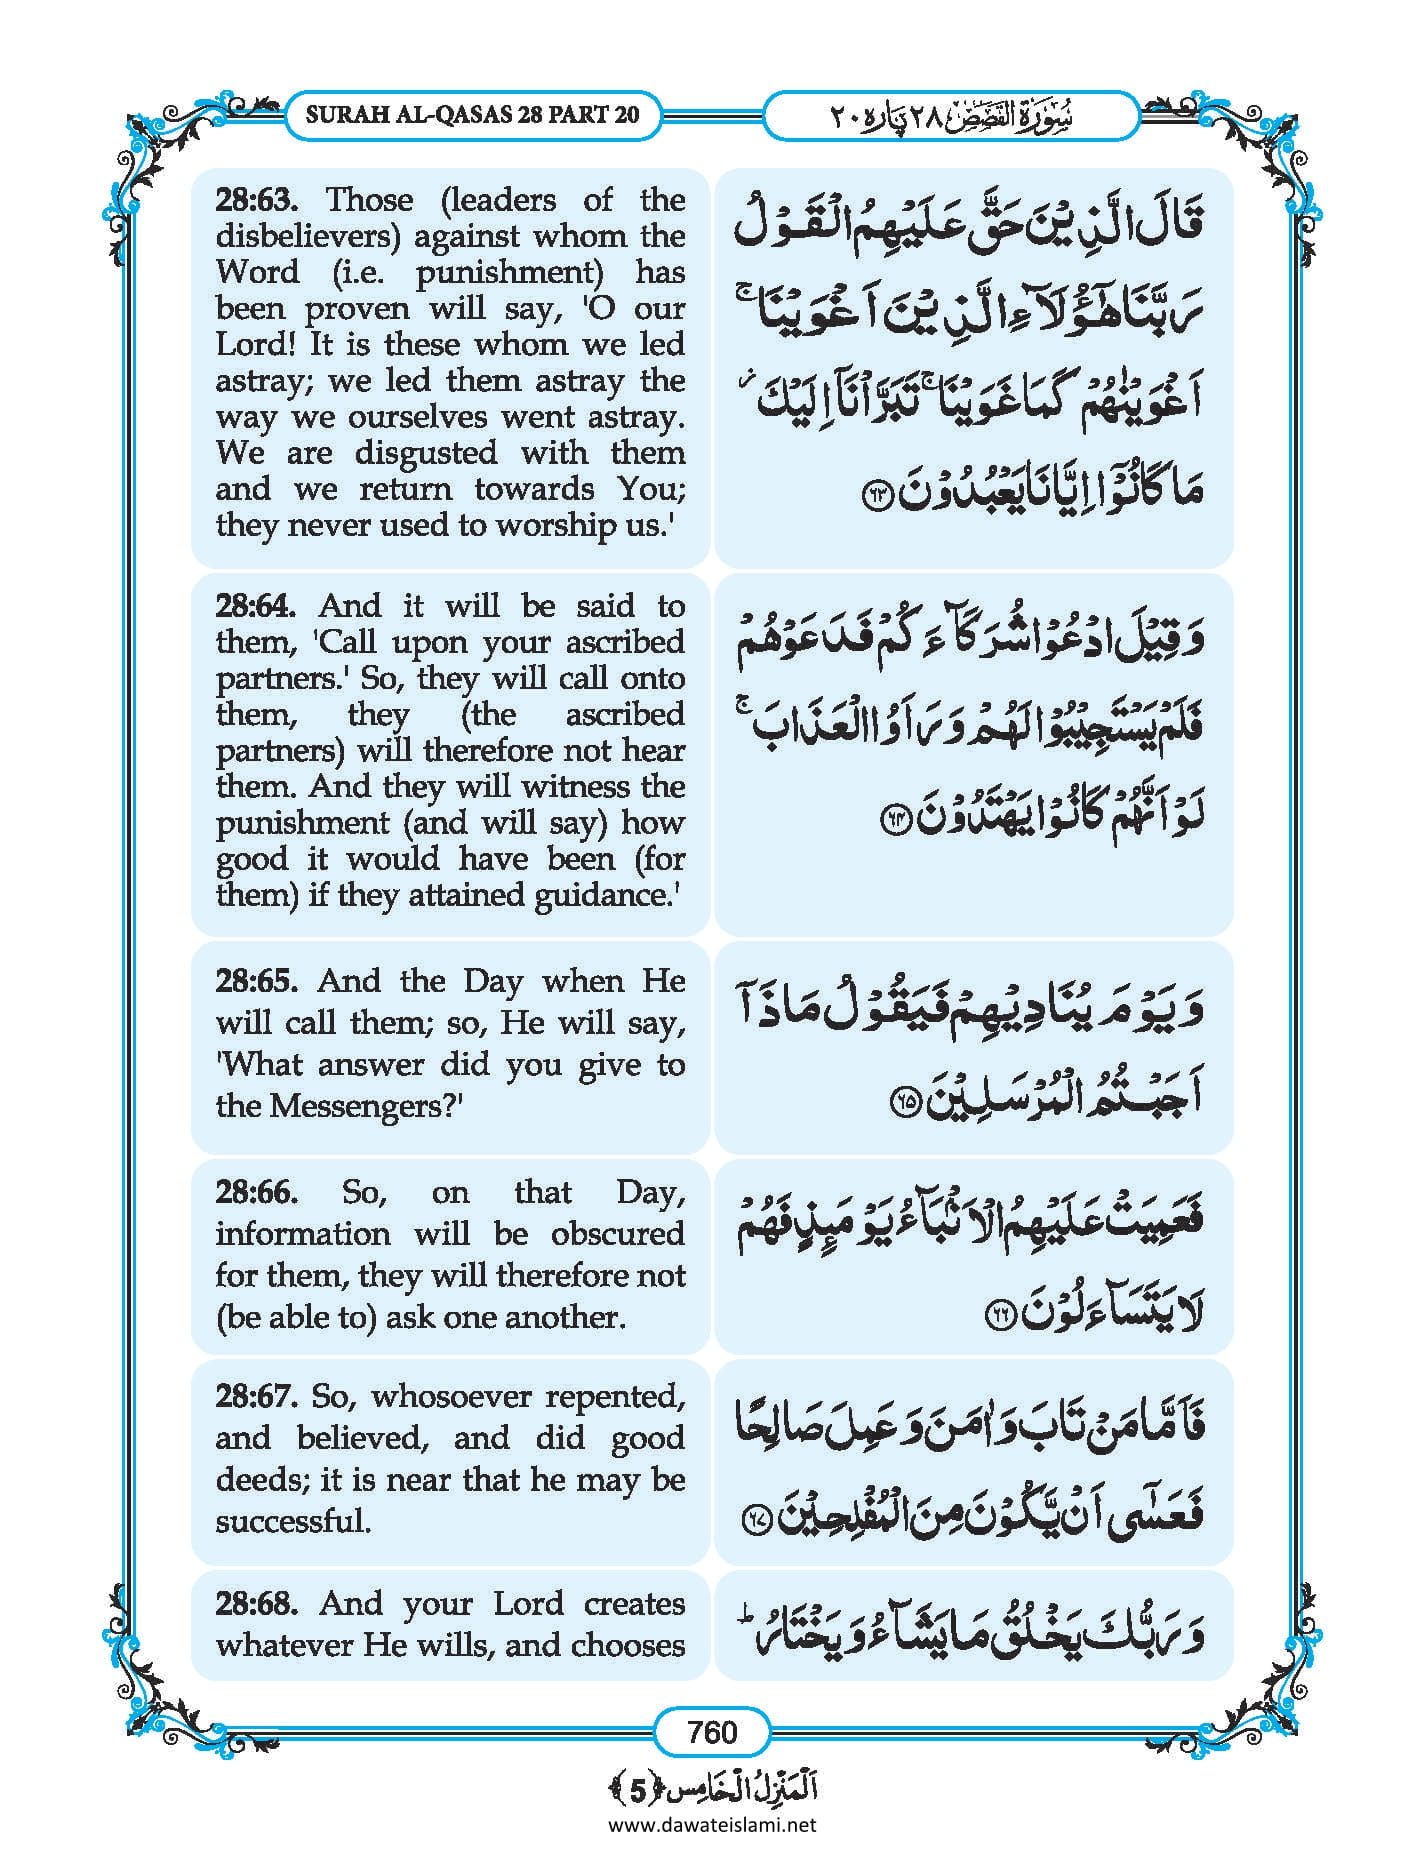 SURAH AL-QASAS 28 PART 20
سُوۡرَةُ الۡقَصَصِ ٢٨ پَارہ ٢٠
28:63. Those (leaders of the
disbelievers) against whom the
Word (i.e. punishment) has
been proven will say, 'O our
Lord! It is these whom we led
astray; we led them astray the
way we ourselves went astray.
We are disgusted with them
and we return towards You;
they never used to worship us.'
قَالَ الَّذِیۡنَ حَقَّ عَلَیۡهِمُ الۡقَوۡلُ
رَبَّنَا هٰۤؤُلَآءِ الَّذِیۡنَ اَغۡوَیۡنَا ۚ
اَغۡوَیۡنٰهُمۡ كَمَا غَوَیۡنَا ۚ تَبَرَّاۡنَاۤ اِلَیۡكَ ؗ
مَا كَانُوۡۤا اِیَّانَا یَعۡبُدُوۡنَ ﴿٦٣﴾
28:64. And it will be said to
them, 'Call upon your ascribed
partners.' So, they will call onto
them, they (the ascribed
partners) will therefore not hear
them. And they will witness the
punishment (and will say) how
good it would have been (for
them) if they attained guidance.'
وَ قِیۡلَ ادۡعُوۡا شُرَكَآءَكُمۡ فَدَعَوۡهُمۡ
فَلَمۡ یَسۡتَجِیۡبُوۡا لَهُمۡ وَ رَاَوُا الۡعَذَابَ ۚ
لَوۡ اَنَّهُمۡ كَانُوۡا یَهۡتَدُوۡنَ ﴿٦٤﴾
28:65. And the Day when He
will call them; so, He will say,
'What answer did you give to
the Messengers?'
وَ یَوۡمَ یُنَادِیۡهِمۡ فَیَقُوۡلُ مَاذَاۤ
اَجَبۡتُمُ الۡمُرۡسَلِیۡنَ ﴿٦٥﴾
28:66. So, on that Day,
information will be obscured
for them, they will therefore not
(be able to) ask one another.
فَعَمِیَتۡ عَلَیۡهِمُ الۡاَنۡۢبَآءُ یَوۡمَئِذٍ فَهُمۡ
لَا یَتَسَآءَلُوۡنَ ﴿٦٦﴾
28:67. So, whosoever repented,
and believed, and did good
deeds; it is near that he may be
successful.
فَاَمَّا مَنۡ تَابَ وَ اٰمَنَ وَ عَمِلَ صَالِحًا
فَعَسٰۤی اَنۡ یَّكُوۡنَ مِنَ الۡمُفۡلِحِیۡنَ ﴿٦٧﴾
28:68. And your Lord creates
whatever He wills, and chooses
وَ رَبُّكَ یَخۡلُقُ مَا یَشَآءُ وَ یَخۡتَارُ ؕ
760
اَلۡمَنۡزِلُ الۡخَامِس ﴿5﴾
www.dawateislami.net